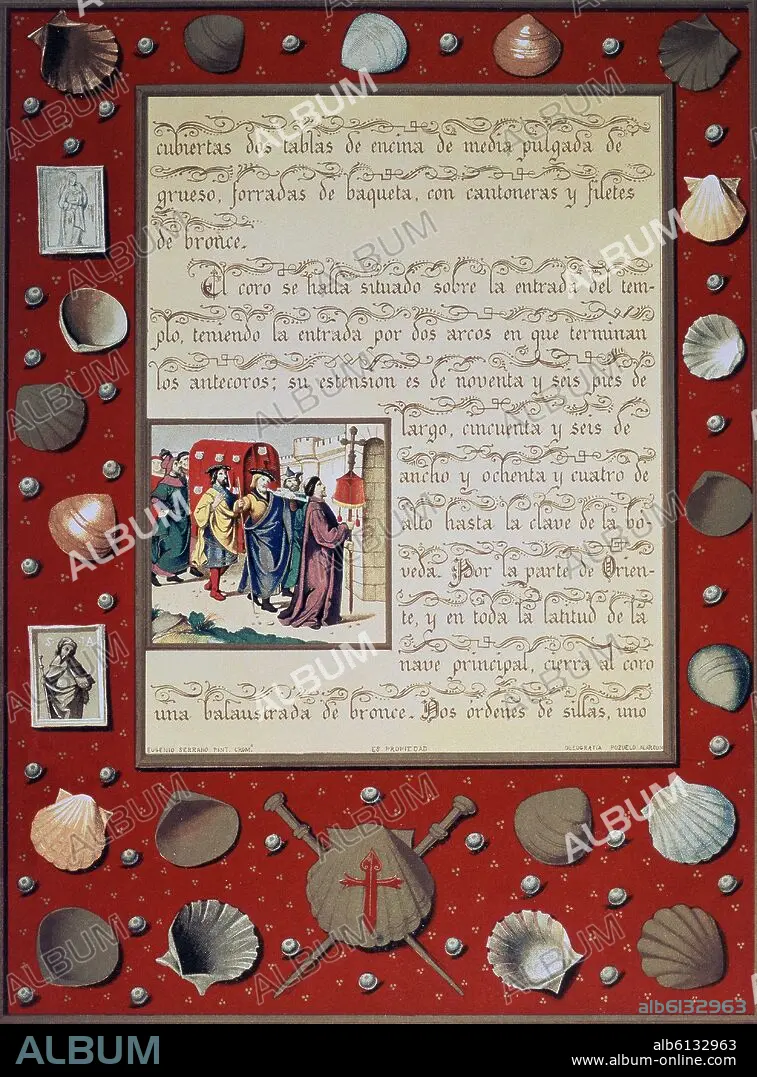 cubiertas dos tablas de encina de media pulgada de
grueso, forradas de baqueta, con cantoneras y filetes
de bronce.
El coro se halla situado sobre la entrada del tem-
plo, teniendo la entrada por dos arcos en que terminan
los antecoros; su estension es de noventa y seis pies de
largo, cincuenta y seis de
ancho y ochenta y cuatro de
alto hasta la clave de la bó-
veda. Por la parte de Orien-
te, y en toda la latitud de la
nave principal, cierra al coro
una balaustrada de bronce. Dos órdenes de sillas, uno
EUGENIO SERRANO PINT. CROM.
ES PROPIEDAD
OLEOGRAFIA POZUELO ALARCON
alb6132963
ALBUM
alb6132963
www.album-online.com